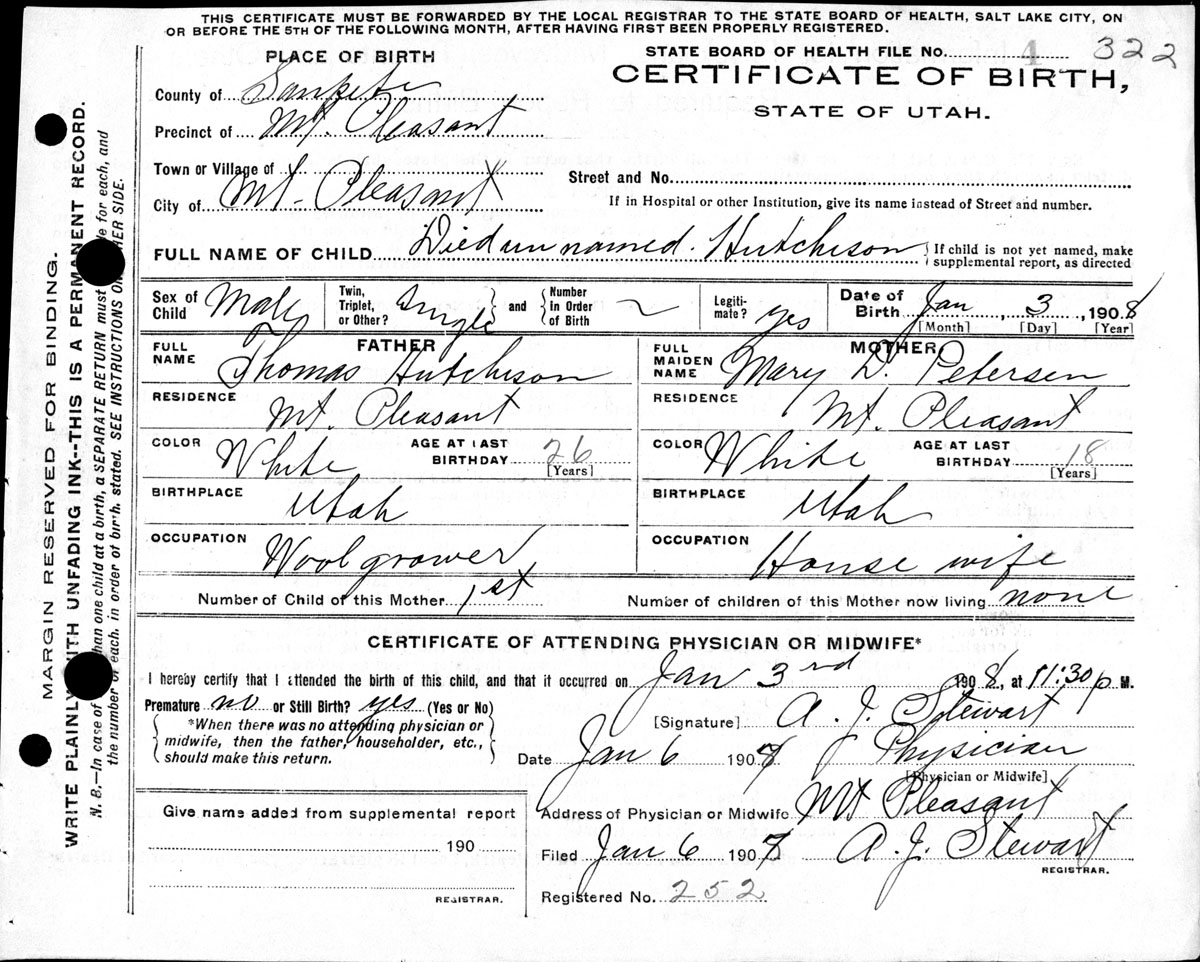 THIS CERTIFICATE MUST BE FORWARDED BY THE LOCAL REGISTRAR TO THE STATE BOARD OF HEALTH, SALT LAKE CITY, ON
OR BEFORE THE 5TH OF THE FOLLOWING MONTH, AFTER HAVING FIRST BEEN PROPERLY REGISTERED.
PLACE OF BIRTH
STATE BOARD OF HEALTH FILE NO. 4 322
CERTIFICATE OF BIRTH,
STATE OF UTAH.
County of Sanpete
Precinct of Mt. Pleasant
Town or Village of
Street and No.
City of Mt. Pleasant
If in Hospital or other Institution, give its name instead of Street and number.
FULL NAME OF CHILD Died un named. Hutchison
If child is not yet named, make
supplemental report, as directed
Sex of Child Male
Twin, Triplet, or Other? Single and Number in Order of Birth
Legitimate? yes
Date of Birth Jan 3, 1908
[Month] [Day] [Year]
FATHER
FULL NAME Thomas Hutchison
RESIDENCE Mt. Pleasant
COLOR White AGE AT LAST BIRTHDAY 26
[Years]
BIRTHPLACE Utah
OCCUPATION Wool grower
MOTHER
FULL MAIDEN NAME Mary D. Petersen
RESIDENCE Mt. Pleasant
COLOR White AGE AT LAST BIRTHDAY 18
[Years]
BIRTHPLACE Utah
OCCUPATION House wife
Number of Child of this Mother 1st
Number of children of this Mother now living none
CERTIFICATE OF ATTENDING PHYSICIAN OR MIDWIFE*
I hereby certify that I attended the birth of this child, and that it occurred on Jan 3rd 1908, at 11:30 p M.
Premature no or Still Birth? yes (Yes or No)
*When there was no attending physician or
midwife, then the father, householder, etc.,
should make this return.
[Signature] A. J. Stewart
Date Jan 6 190 Physician
[Physician or Midwife]
Give name added from supplemental report
190
REGISTRAR.
Address of Physician or Midwife Mt Pleasant
Filed Jan 6 190 A. J. Stewart
REGISTRAR.
Registered No. 252
MARGIN RESERVED FOR BINDING.
WRITE PLAINLY WITH UNFADING INK--THIS IS A PERMANENT RECORD.
N. B.—In case of than one child at a birth, a SEPARATE RETURN must for each, and
the number of each, in order of birth, stated. SEE INSTRUCTIONS ON SIDE.